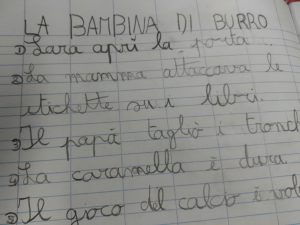 LA BAMBINA DI BURRO
1) Sara aprì la porta.
2) La mamma attaccava le
etichette sui libri.
3) Il papà tagliò i tronch
4) La caramella è dura.
5) Il gioco del calcio è vol